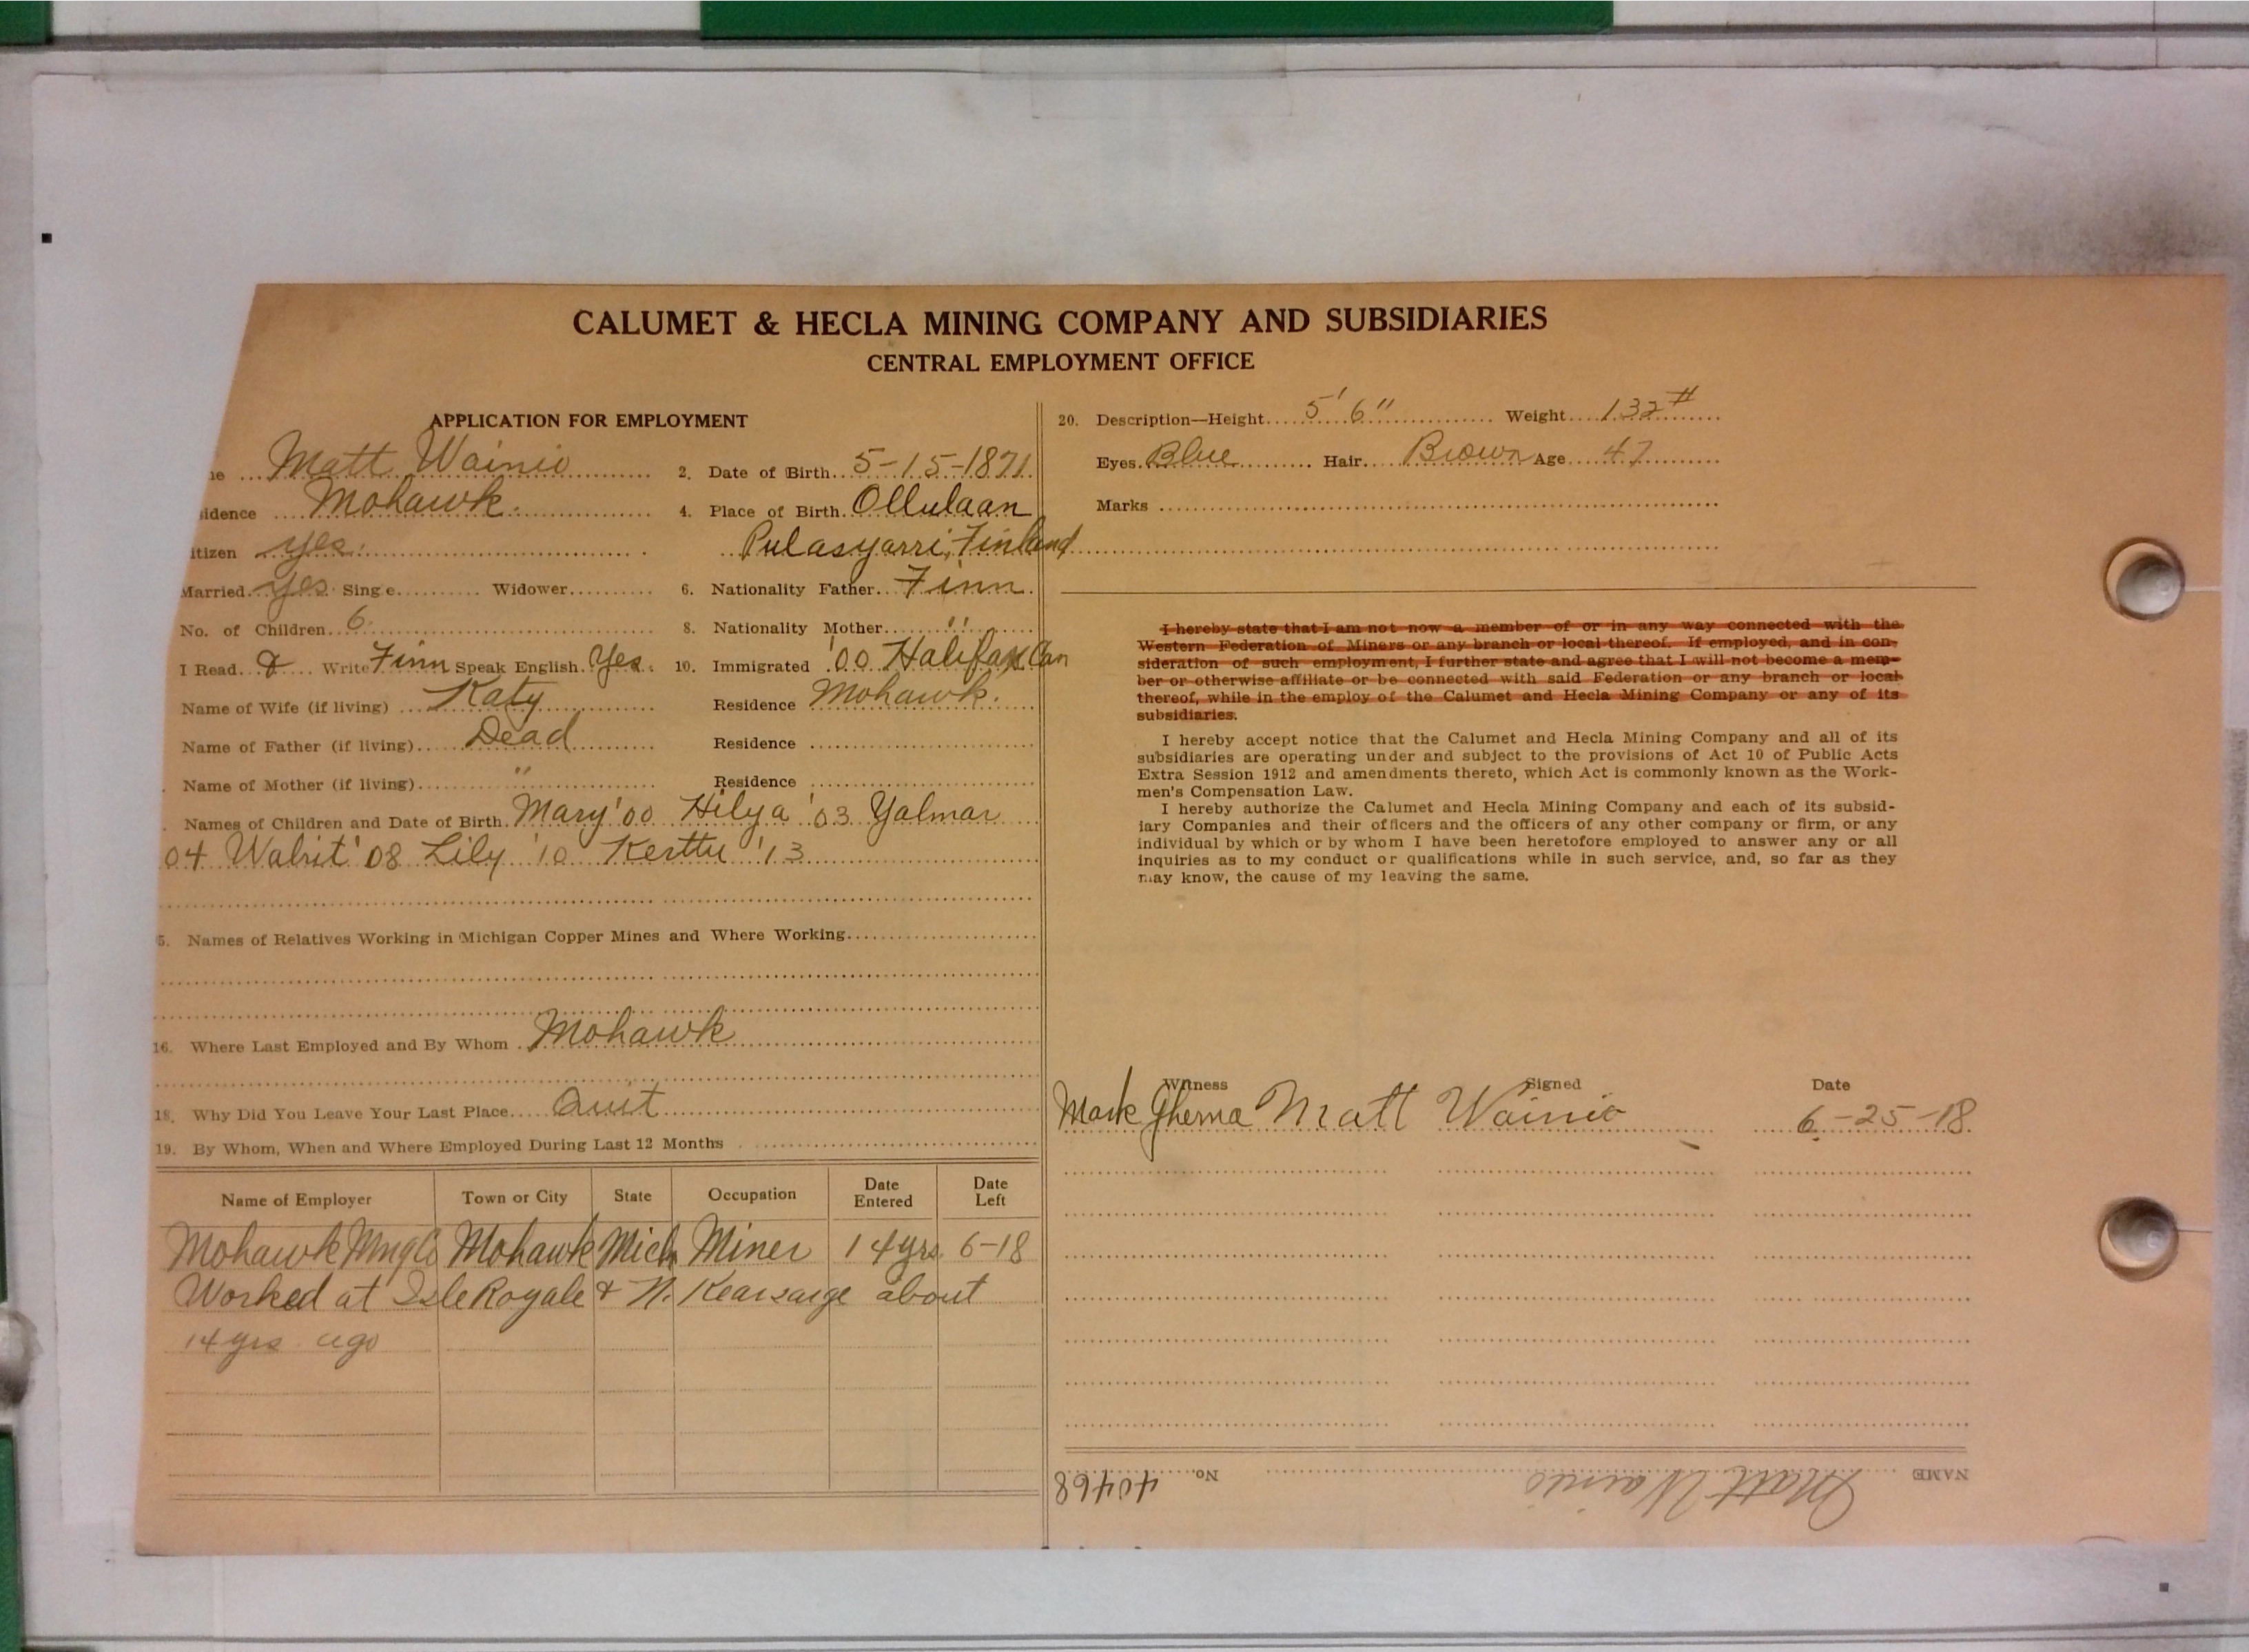 CALUMET & HECLA MINING COMPANY AND SUBSIDIARIES
CENTRAL EMPLOYMENT OFFICE
APPLICATION FOR EMPLOYMENT
me Matt Wainio
2. Date of Birth 5-15-1871
sidence Mohawk.
4. Place of Birth Ollulaan
itizen yes.
Pulasyarri, Finland
Married yes. Sing e Widower
6. Nationality Father Finn
No. of Children 6.
8. Nationality Mother "
I Read & Write Finn Speak English Yes.
10. Immigrated '00 Halifax Can
Name of Wife (if living) Katy
Residence Mohawk.
Name of Father (if living) Dead
Residence
Name of Mother (if living) "
Residence
Names of Children and Date of Birth Mary '00 Hilya '03 Yalmar
04 Walrit '08 Lily '10 Kerttu '13
5. Names of Relatives Working in Michigan Copper Mines and Where Working
16. Where Last Employed and By Whom Mohawk
18. Why Did You Leave Your Last Place Quit
19. By Whom, When and Where Employed During Last 12 Months
Name of Employer Town or City State Occupation Date Entered Date Left
Mohawk Mng Co Mohawk Mich Miner 14 yrs. 6-18
Worked at Isle Royale & N. Kearsarge about
14 yrs ago
20. Description—Height 5' 6" Weight 132 #
Eyes Blue Hair Brown Age 47
Marks
I hereby state that I am not now a member of or in any way connected with the
Western Federation of Miners or any branch or local thereof. If employed, and in con-
sideration of such employment, I further state and agree that I will not become a mem-
ber or otherwise affiliate or be connected with said Federation or any branch or local
thereof, while in the employ of the Calumet and Hecla Mining Company or any of its
subsidiaries.
I hereby accept notice that the Calumet and Hecla Mining Company and all of its
subsidiaries are operating under and subject to the provisions of Act 10 of Public Acts
Extra Session 1912 and amendments thereto, which Act is commonly known as the Work-
men's Compensation Law.
I hereby authorize the Calumet and Hecla Mining Company and each of its subsid-
iary Companies and their officers and the officers of any other company or firm, or any
individual by which or by whom I have been heretofore employed to answer any or all
inquiries as to my conduct or qualifications while in such service, and, so far as they
may know, the cause of my leaving the same.
Witness Signed Date
Mark Gherna Matt Wainio 6-25-18
NAME Matt Wainio No. 40468